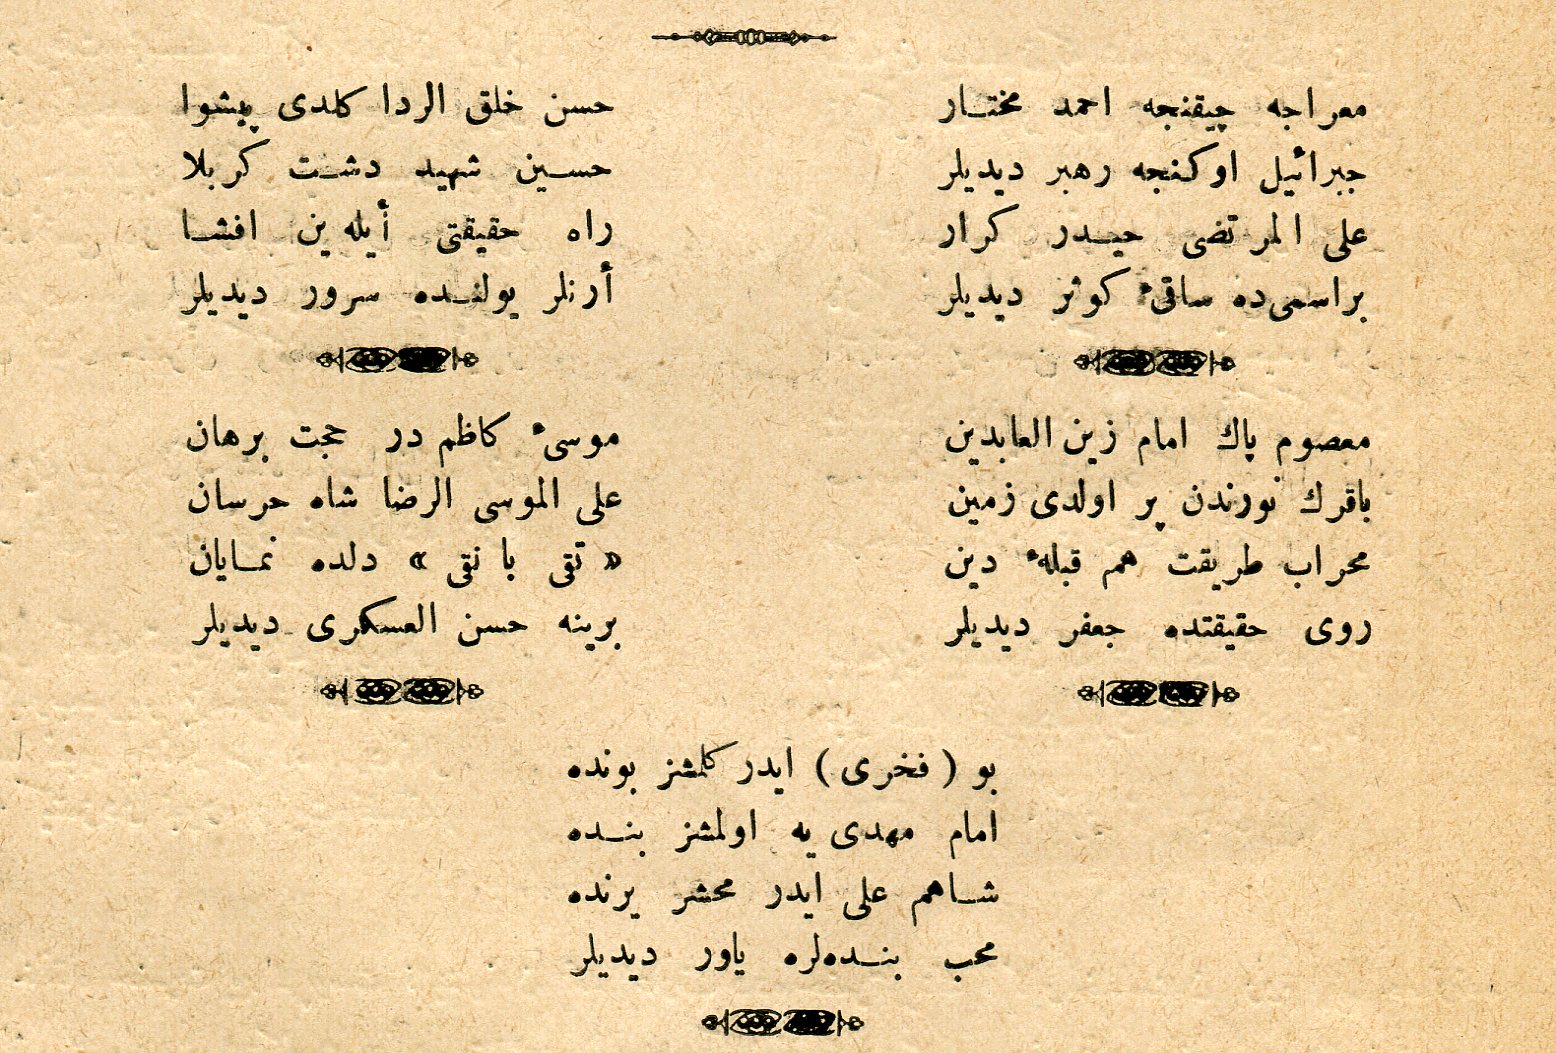 معراجه چیقنجه احمد مختار
جبرائیل اوکنجه رهبر دیدیلر
علی المرتضی حیدر کرار
براسمی‌ده ساقیٔ کوثر دیدیلر
حسن خلق الردا کلدی پیشوا
حسین شهید دشت کربلا
راه حقیقتی أیله‌ین افشا
أرنلر یولنده سرور دیدیلر
معصوم پاك امام زین العابدین
باقرك نورندن پر اولدی زمین
محراب طریقت هم قبلهٔ دین
روی حقیقتده جعفر دیدیلر
موسیٔ کاظم در حجت برهان
علی الموسی الرضا شاه حرسان
« تقی با نقی » دلده نمایان
برینه حسن العسکری دیدیلر
بو ( فخری ) ایدر کلمشز بونده
امام مهدی یه اولمشز بنده
شاهم علی ایدر محشر یرنده
محب بنده‌لره یاور دیدیلر